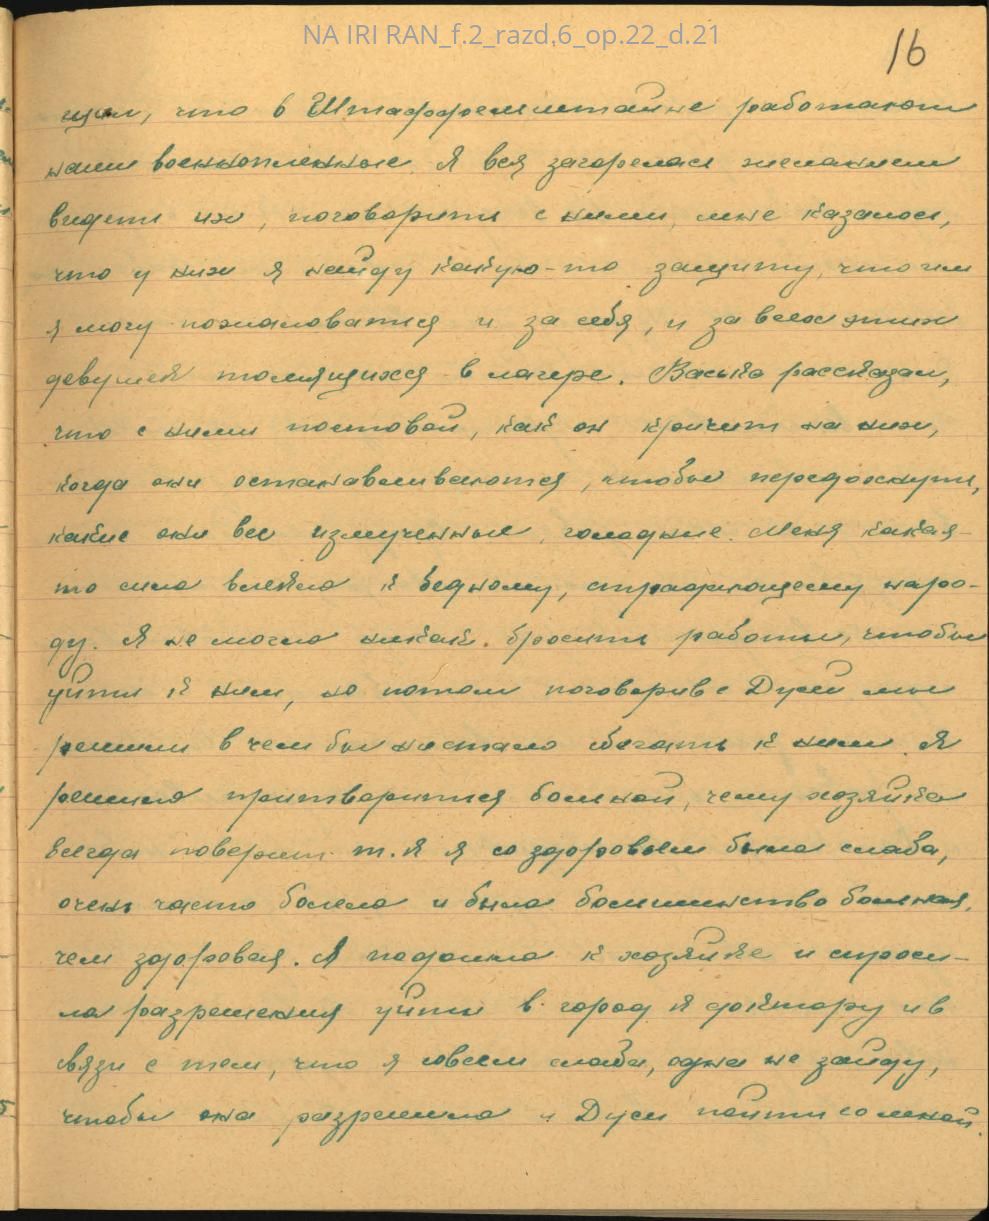 NA IRI RAN_f.2_razd.6_op.22_d.21
16
щил, что в Штаффренштайне работают
наши военнопленные. Я вся загорелась желанием
видеть их, поговорить с ними, мне казалось,
что у них я найду какую-то защиту, что им
я могу пожаловаться и за себя, и за всех этих
девушек томящихся в лагере. Васька рассказал,
что с ними постовой, как он кричит на них,
когда они останавливаются, чтобы передохнуть,
какие они все измученные, голодные. Меня какая-
то сила влекла к бедному, страдающему наро-
ду. Я не могла никак. бросить работы, чтобы
уйти к ним, но потом поговорив с Дусей мы
решили в чем бы ни стало бегать к ним. Я
решила притвориться больной, чему хозяйка
всегда поверит т.к я со здоровьем была слаба,
очень часто болела и была большинство больная,
чем здоровая. Я подошла к хозяйке и спроси-
ла разрешения уйти в город к доктору и в
связи с тем, что я совсем слаба, одна не зайду,
чтобы она разрешила и Дуси пойти со мной.